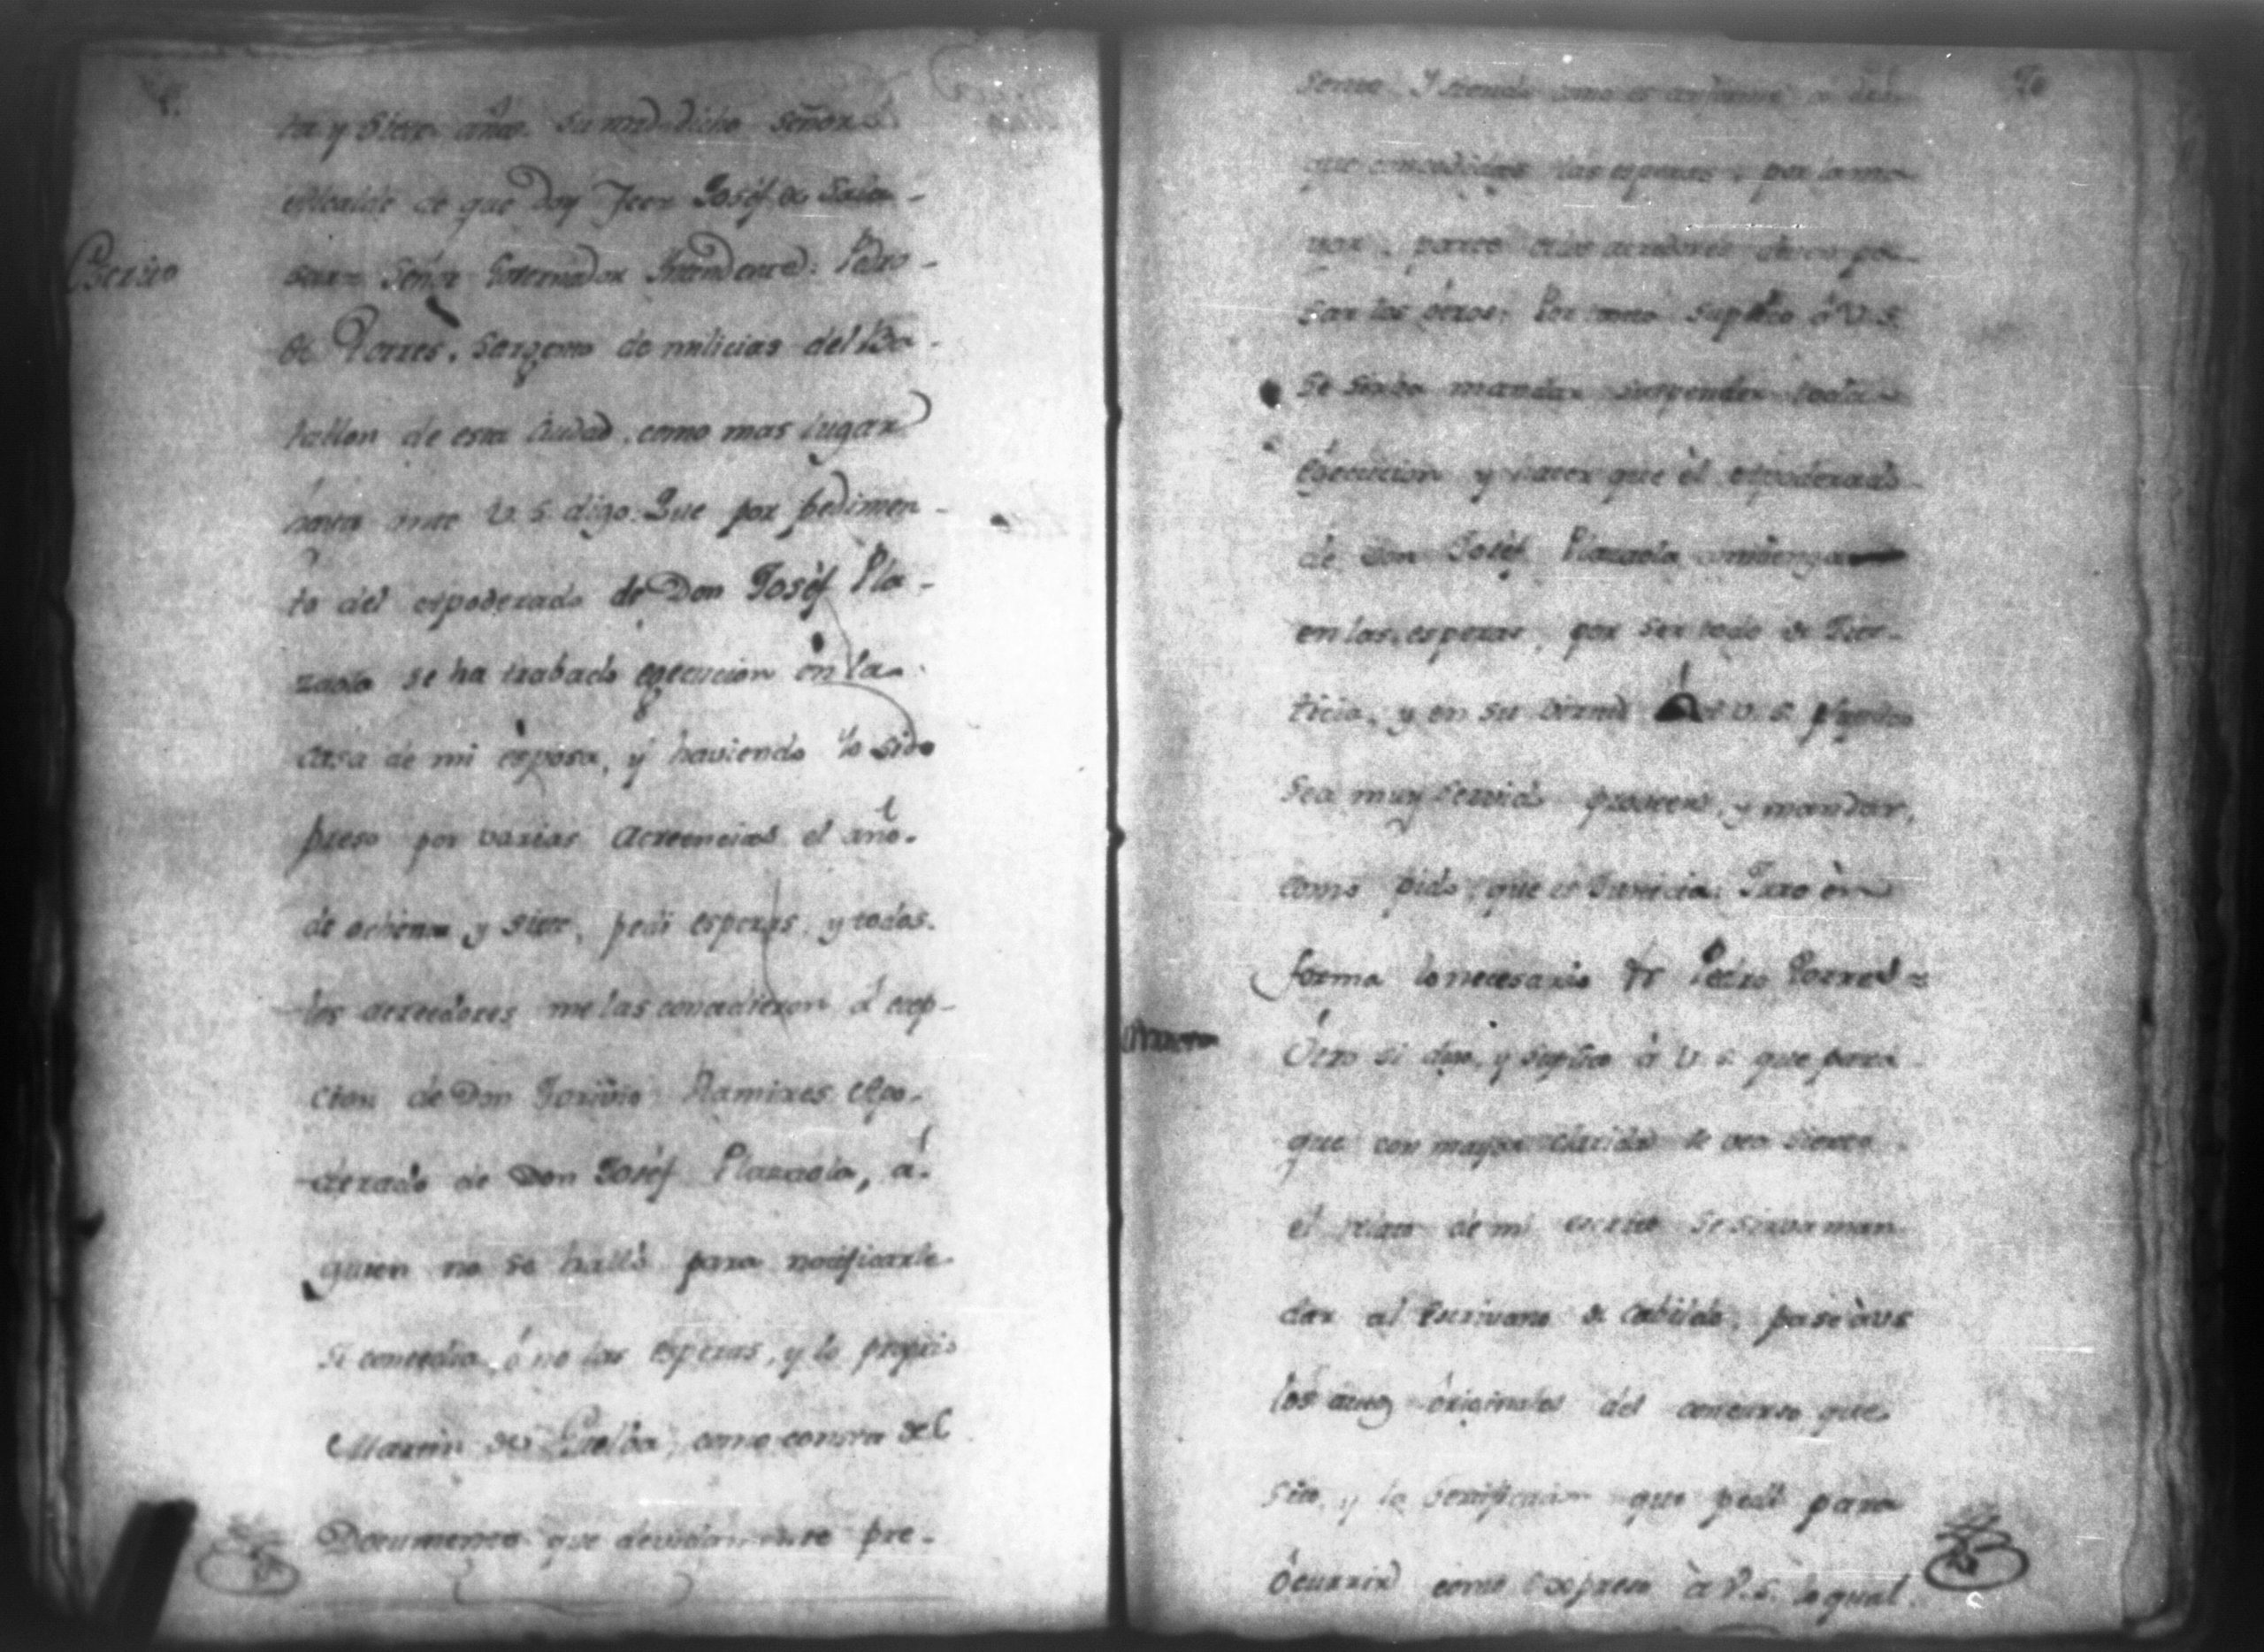 ta y siete años. su md. dicho señor
Alcalde de que doy feè = Josèf de Sala-
Escrito
sar = Señor Governador Yntendente. Pedro
de Torres, Sargento de milicias del Ba-
tallon de esta Ciudad, como mas lugar
haya ante V.S. digo: Que por pedimen-
to del apoderado de Don Josèf Pla-
zaola se ha trabado egecucion en la
casa de mi esposa, y haviendo yo sido
preso por varias acreencias el año
de ochenta y siete, pedi esperas, y todos
los acreedores me las concedieron á excep-
cion de Don Ramires Apo-
derado de Don Josèf Plazaola, á
quien no se halló para notificarle
si concedia, ó no las esperas, y lo propio
Martin de como consta del
Documento que devidamente pre-
70
sento. Y siendo como es conforme a
que concedidas las esperas por la ma-
yor parte de los acreedores deven pa-
sar los otros: Por tanto suplico á V.S.
se sirva mandar suspender toda
egecucion y hacer que èl apoderado
de Don Josèf Plazaola convenga
en las esperas, por ser todo de Jus-
ticia, y en su virtud A V.S. pido y suplico
sea muy servido proveer, y mandar,
como pido, que es Justicia. Juro en
forma lo necesario &ª Pedro Torres =
Otro si digo, y suplico á V.S. que para
que con mayor claridad se vea sierto
el relato de mi escrito se sirva man
dar al Escrivano de Cabildo, pase à VS
los autos originales del concurso que
sito, y la que pedi para
òcurrir como expreso à V.S. lo qual